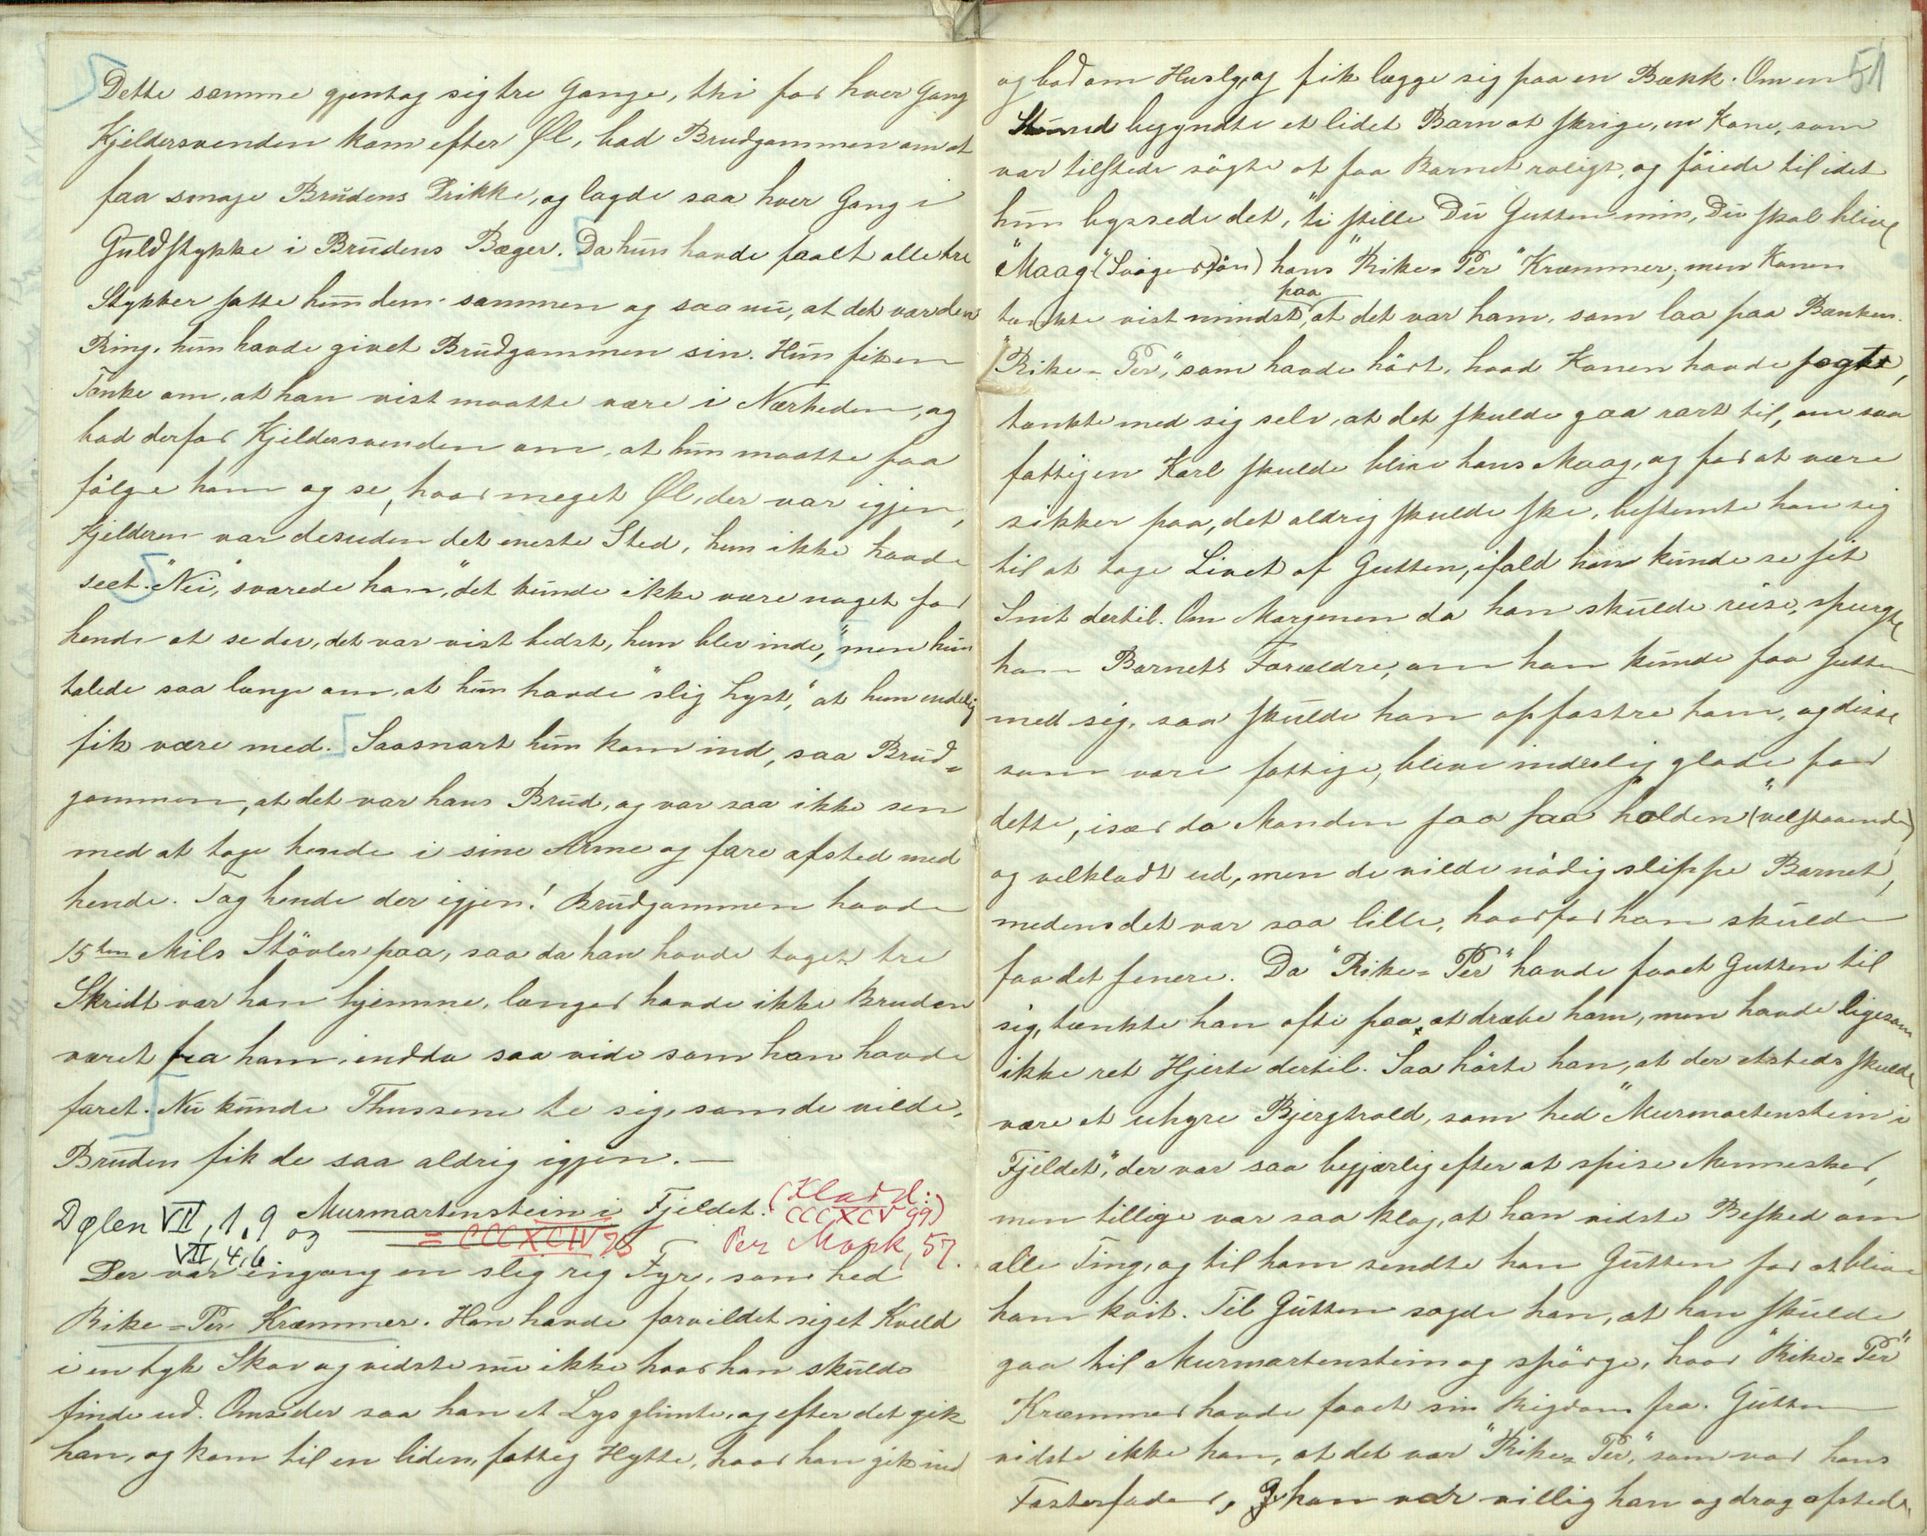 Dette samme gjentog sig tre Gange, thi for hver Gang
Kjeldersvenden kom efter Øl, bad Brudgommen om at
faa smage Brudens Drikke, og lagde saa hver Gang i
Guldstykke i Brudens Bæger. Da hun havde faaet alle tre
Stykker satte hun dem sammen og saa nu, at det var den
Ring, hun havde givet Brudgommen sin. Hun fik en
Tanke om, at han vist maatte være i Nærheden, og
bad derfor Kjeldersvenden om, at hun maatte faa
følge ham og se, hvor meget Øl, der var igjen,
Kjelderen var desuden det eneste Sted, hun ikke havde
seet. "Nei," svarede han, "det kunde ikke være noget for
hende at se der, det var vist bedst, hun blev inde," men hun
talede saa længe om, at hun havde "slig Lyst," at hun endelig
fik være med. Saasnart hun kom ind, saa Brud-
gommen, at det var hans Brud, og var saa ikke sen
med at tage hende i sine Arme og fare afsted med
hende. Tag hende der igjen! Brudgommen havde
15 ten Mils Støvler paa, saa da han havde taget tre
Skridt var han hjemme, længer havde ikke Bruden
været fra ham, endda saa vide som han havde
faret. Nu kunde Thussene te sig, som de vilde,
Bruden fik de saa aldrig igjen. —
Dølen VII, 1.9 og Murmartenstein i Fjeldet. (Kladd:
VII, 4, 6 = CCCXCIV 75 CCCXCV 99)
Per Mork, 57.
Der var engang en slig rig Fyr, som hed
Rike-Per Kræmmer. Han havde forvildet sig et Kveld
i en tyk Skov og vidste nu ikke hvor han skulde
finde ud. Omsider saa han et Lys glimte, og efter det gik
han, og kom til en liden, fattig Hytte, hvor han gik ind
51
og bad om Husly, og fik lægge sig paa en Bænk. Om en
Stund begyndte et lidet Barn at skrige, en Kone, som
var tilstede søgte at faa Barnet roligt, og føiede til idet
hun byssede det, "ti stille Du Gutten min, Du skal blive
"Maag" (Svigersøn) hans "Rike-Per" Kræmmer, men Konen
tænkte vist mindst paa, at det var ham, som laa paa Bænken.
"Rike-Per", som havde hørt, hvad Konen havde sagt,
tænkte med sig selv, at det skulde gaa rart til, om saa
fattig en Karl skulde blive hans Maag, og for at være
sikker paa, det aldrig skulde ske, bestemte han sig
til at tage Livet af Gutten, ifald han kunde se sit
Snit dertil. Om Morgenen da han skulde reise, spurgte
han Barnets Forældre, om han kunde faa Gutten
med sig, saa skulde han opfostre ham, og disse
som vare fattige, bleve inderlig glade for
dette, især da Manden saa saa "holden" (velstaaende)
og velklædt ud, men de vilde nødig slippe Barnet,
medens det var saa lille, hvorfor han skulde
faa det senere. Da "Rike-Per" havde faaet Gutten til
sig, tænkte han ofte paa, at dræbe ham, men havde ligesom
ikke ret Hjerte dertil. Saa hørte han, at der etsteds skulde
være et uhyre Bjergtrold, som hed "Murmartenstein i
Fjeldet", der var saa begjærlig efter at spise Mennesker,
men tillige var saa klog, at han vidste Besked om
alle Ting, og til ham sendte han Gutten for at blive
ham kvit. Til Gutten sagde han, at han skulde
gaa til Murmartenstein og spørge, hvor "Rike-Per"
Kræmmer havde faaet sin Rigdom fra. Gutten
vidste ikke han, at det var "Rike-Per", som var hans
Fosterfader, han var villig han og drog afsted.